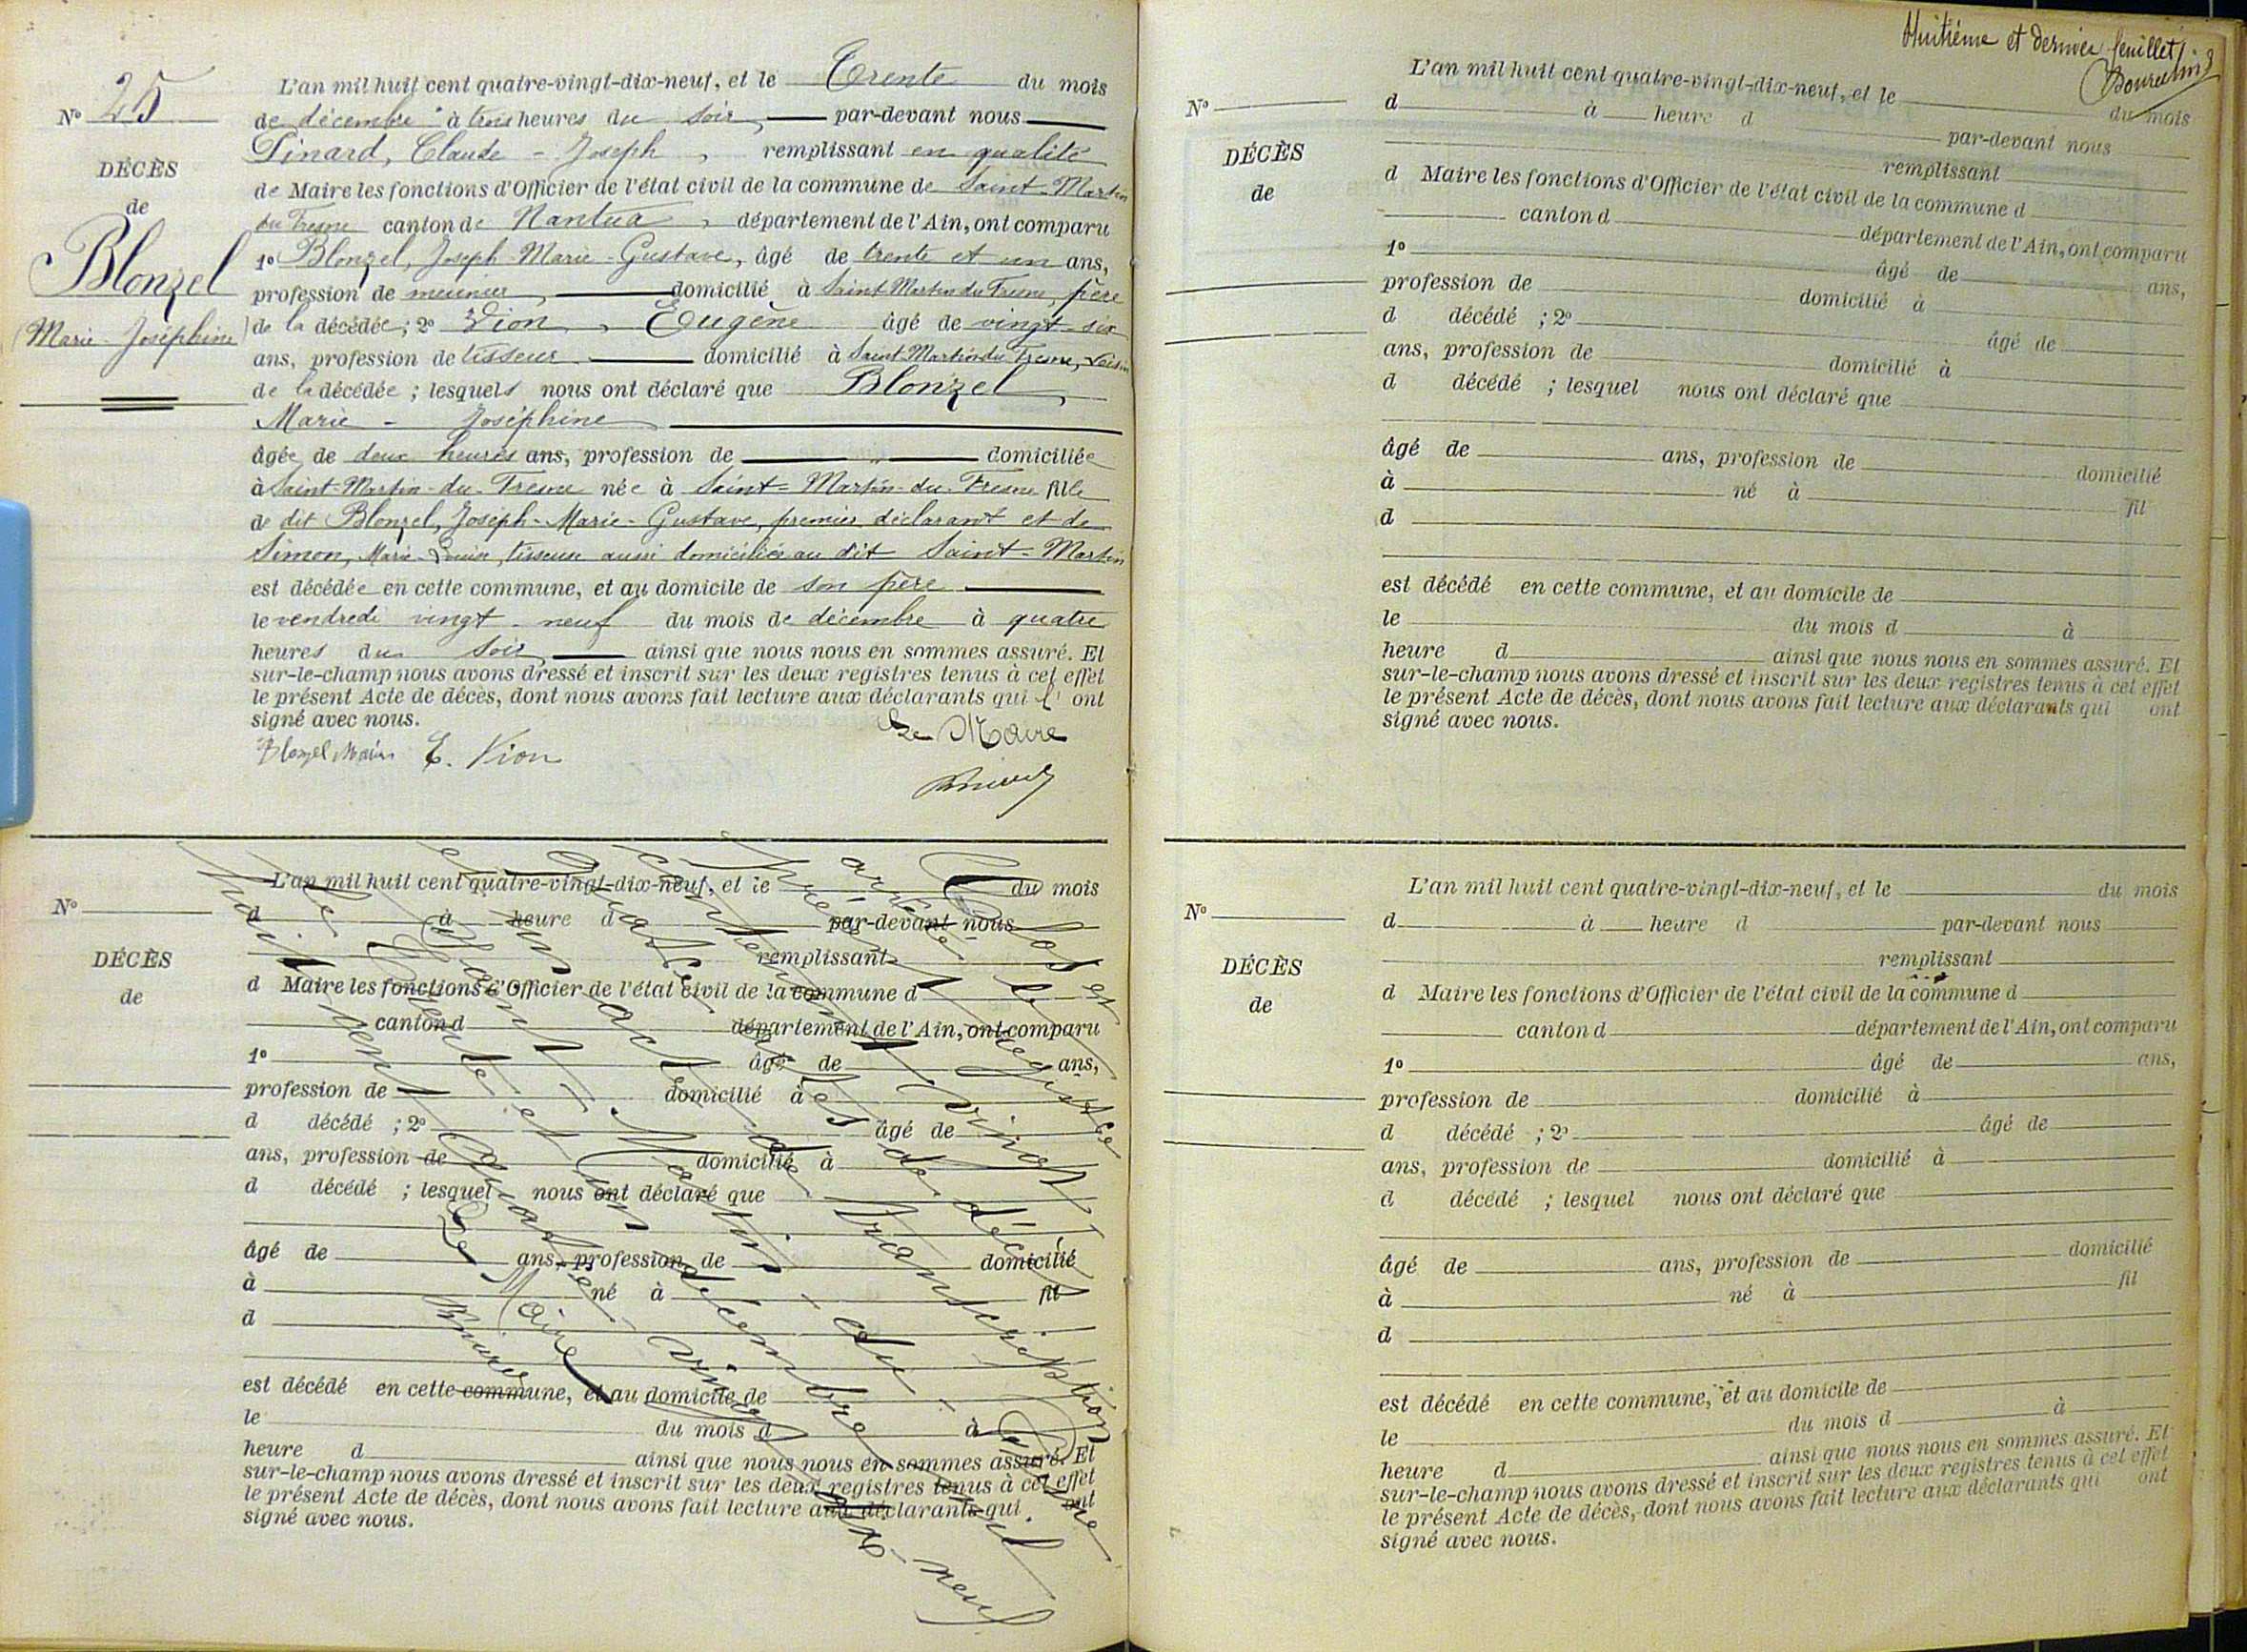 N° 25
DÉCÈS
de
Blonzel
(Marie-Joséphine)
L'an mil huit cent quatre-vingt-dix-neuf, et le Trente du mois
de décembre à trois heures du soir, par-devant nous
Pinard, Claude-Joseph, remplissant en qualité
de Maire les fonctions d'Officier de l'état civil de la commune de Saint-Martin
du Fresne canton de Nantua, département de l'Ain, ont comparu
1° Blonzel, Joseph-Marie-Gustave, âgé de trente et un ans,
profession de meunier, domicilié à Saint Martin du Fresne, père
de la décédée; 2° Vion, Eugène âgé de vingt-six
ans, profession de tisseur domicilié à Saint-Martin du Fresne, voisin
de la décédée; lesquels nous ont déclaré que Blonzel,
Marie-Joséphine
âgée de deux heures ans, profession de " domiciliée
à Saint-Martin-du-Fresne née à Saint-Martin-du-Fresne fille
de dit Blonzel, Joseph-Marie-Gustave, premier déclarant et de
Simon, Marie-Louise, tisseuse aussi domiciliée au dit Saint-Martin
est décédée en cette commune, et au domicile de son père
le vendredi vingt-neuf du mois de décembre à quatre
heures du soir, ainsi que nous nous en sommes assuré. Et
sur-le-champ nous avons dressé et inscrit sur les deux registres tenus à cet effet
le présent Acte de décès, dont nous avons fait lecture aux déclarants qui l'ont
signé avec nous.
Le Maire
Blonzel E. Vion
N°
DÉCÈS
de
L'an mil huit cent quatre-vingt-dix-neuf, et le du mois
d à heure d par-devant nous
remplissant
d Maire les fonctions d'Officier de l'état civil de la commune d
canton d département de l'Ain, ont comparu
1° âgé de ans,
profession de domicilié à
d décédé ; 2° âgé de
ans, profession de domicilié à
d décédé ; lesquel nous ont déclaré que
âgé de ans, profession de domicilié
à né à fil
d
est décédé en cette commune, et au domicile de
le du mois d à
heure d ainsi que nous nous en sommes assuré. Et
sur-le-champ nous avons dressé et inscrit sur les deux registres tenus à cet effet
le présent Acte de décès, dont nous avons fait lecture aux déclarants qui ont
signé avec nous.
Clos et
arrêté le registre
contenant vingt
quatre actes de décès
et un acte de transcription
à Saint-Martin-du-Fresne
le trente et un décembre mil
huit cent quatre vingt dix-neuf
Le Maire
Huitième et dernier feuillet
N°
DÉCÈS
de
L'an mil huit cent quatre-vingt-dix-neuf, et le du mois
d à heure d par-devant nous
remplissant
d Maire les fonctions d'Officier de l'état civil de la commune d
canton d département de l'Ain, ont comparu
1° âgé de ans,
profession de domicilié à
d décédé ; 2° âgé de
ans, profession de domicilié à
d décédé ; lesquel nous ont déclaré que
âgé de ans, profession de domicilié
à né à fil
d
est décédé en cette commune, et au domicile de
le du mois d à
heure d ainsi que nous nous en sommes assuré. Et
sur-le-champ nous avons dressé et inscrit sur les deux registres tenus à cet effet
le présent Acte de décès, dont nous avons fait lecture aux déclarants qui ont
signé avec nous.
N°
DÉCÈS
de
L'an mil huit cent quatre-vingt-dix-neuf, et le du mois
d à heure d par-devant nous
remplissant
d Maire les fonctions d'Officier de l'état civil de la commune d
canton d département de l'Ain, ont comparu
1° âgé de ans,
profession de domicilié à
d décédé ; 2° âgé de
ans, profession de domicilié à
d décédé ; lesquel nous ont déclaré que
âgé de ans, profession de domicilié
à né à fil
d
est décédé en cette commune, et au domicile de
le du mois d à
heure d ainsi que nous nous en sommes assuré. Et
sur-le-champ nous avons dressé et inscrit sur les deux registres tenus à cet effet
le présent Acte de décès, dont nous avons fait lecture aux déclarants qui ont
signé avec nous.